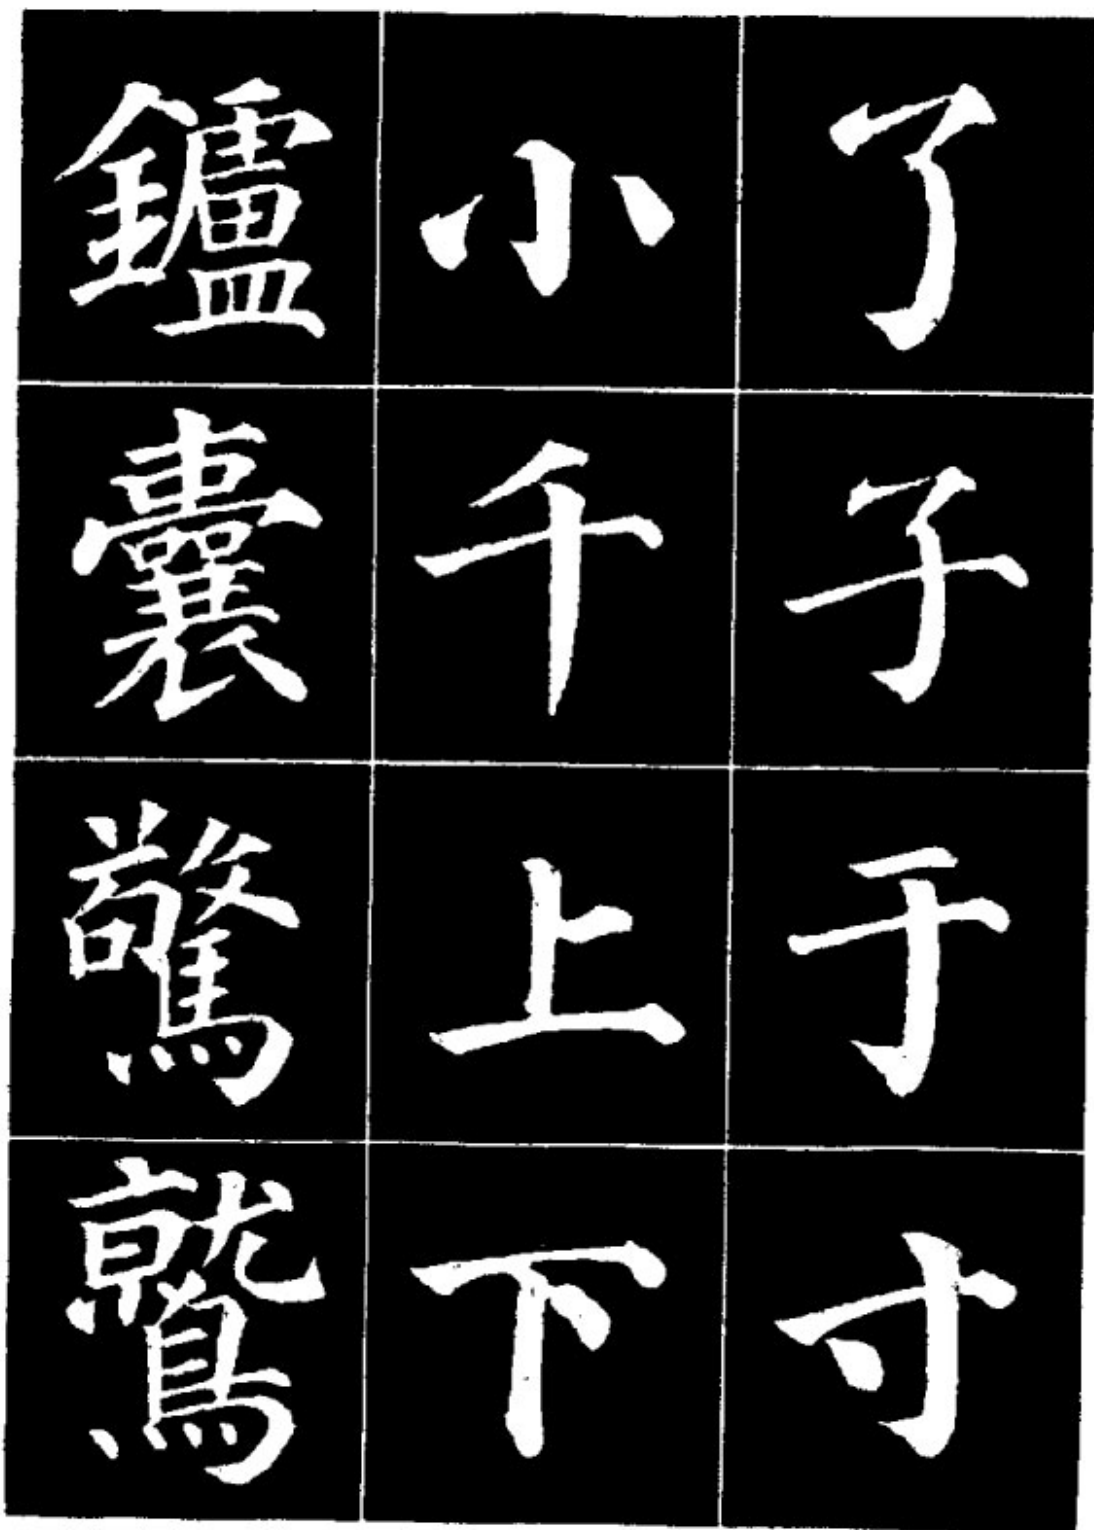 了子于寸
小千上下
鑪囊驚鷲